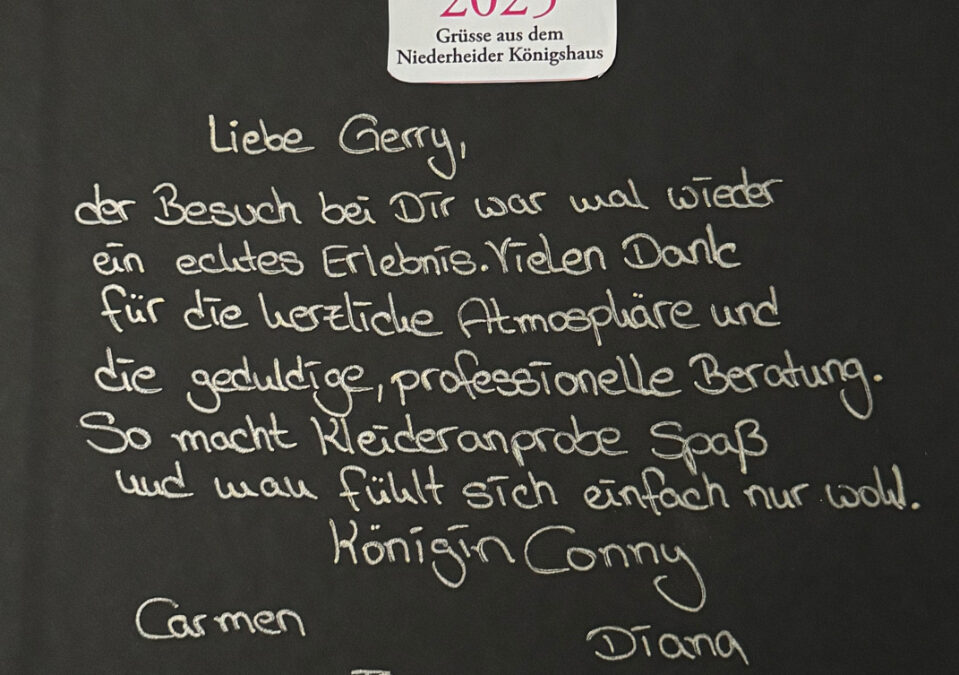 2025
Grüsse aus dem
Niederheider Königshaus
Liebe Gerry,
der Besuch bei Dir war mal wieder
ein echtes Erlebnis. Vielen Dank
für die herzliche Atmosphäre und
die geduldige, professionelle Beratung.
So macht Kleideranprobe Spaß
und man fühlt sich einfach nur wohl.
Königin Conny
Carmen
Diana